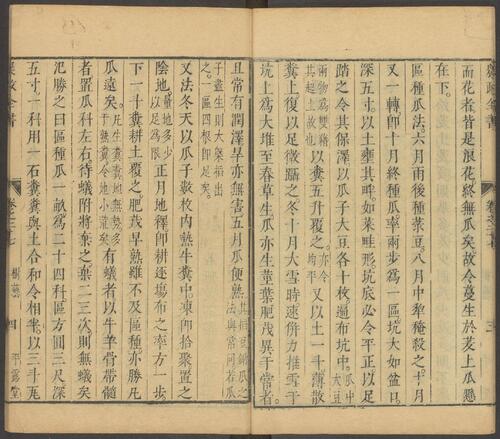 而花者皆是浪花終無瓜矣故令蔓生於茇上瓜懸
在下
區種瓜法六月雨後種菉豆八月中犁䅖殺之十月
又一轉即十月終種瓜率兩步爲一區坑大如盆口
深五寸以土壅其畔如菜畦形坑底必令平正以足
踏之令其保澤以瓜子大豆各十枚遍布坑中瓜中大豆
兩物爲雙藉其起土故也以糞五升覆之亦令均平又以土一斗薄散
糞上復以足微躡之冬十月大雪時速併力推雪于
坑上爲大堆至春草生瓜亦生莖葉肥茂異于常者
且常有潤澤旱亦無害五月瓜便熟其掐豆鋤瓜之法與常同若瓜
子盡生則大稠掐出之一區四根即足矣
又法冬天以瓜子數枚內熱牛糞中凍即拾聚置之
陰地量地多少以足爲限正月地釋即耕逐塲布之率方一步
下一斗糞耕土覆之肥茂早熟雖不及區種亦勝凡
瓜遠矣凡生糞糞地無勢多于熟糞令地小荒矣有蟻者以牛羊骨帶髓
者置瓜科左右待蟻附將棄之棄二三次則無蟻矣
氾勝之曰區種瓜一畝爲二十四科區方圓三尺深
五寸一科用一石糞糞與土合和令相半以三斗瓦
農政全書
卷之二十七
樹藝
四
平露堂